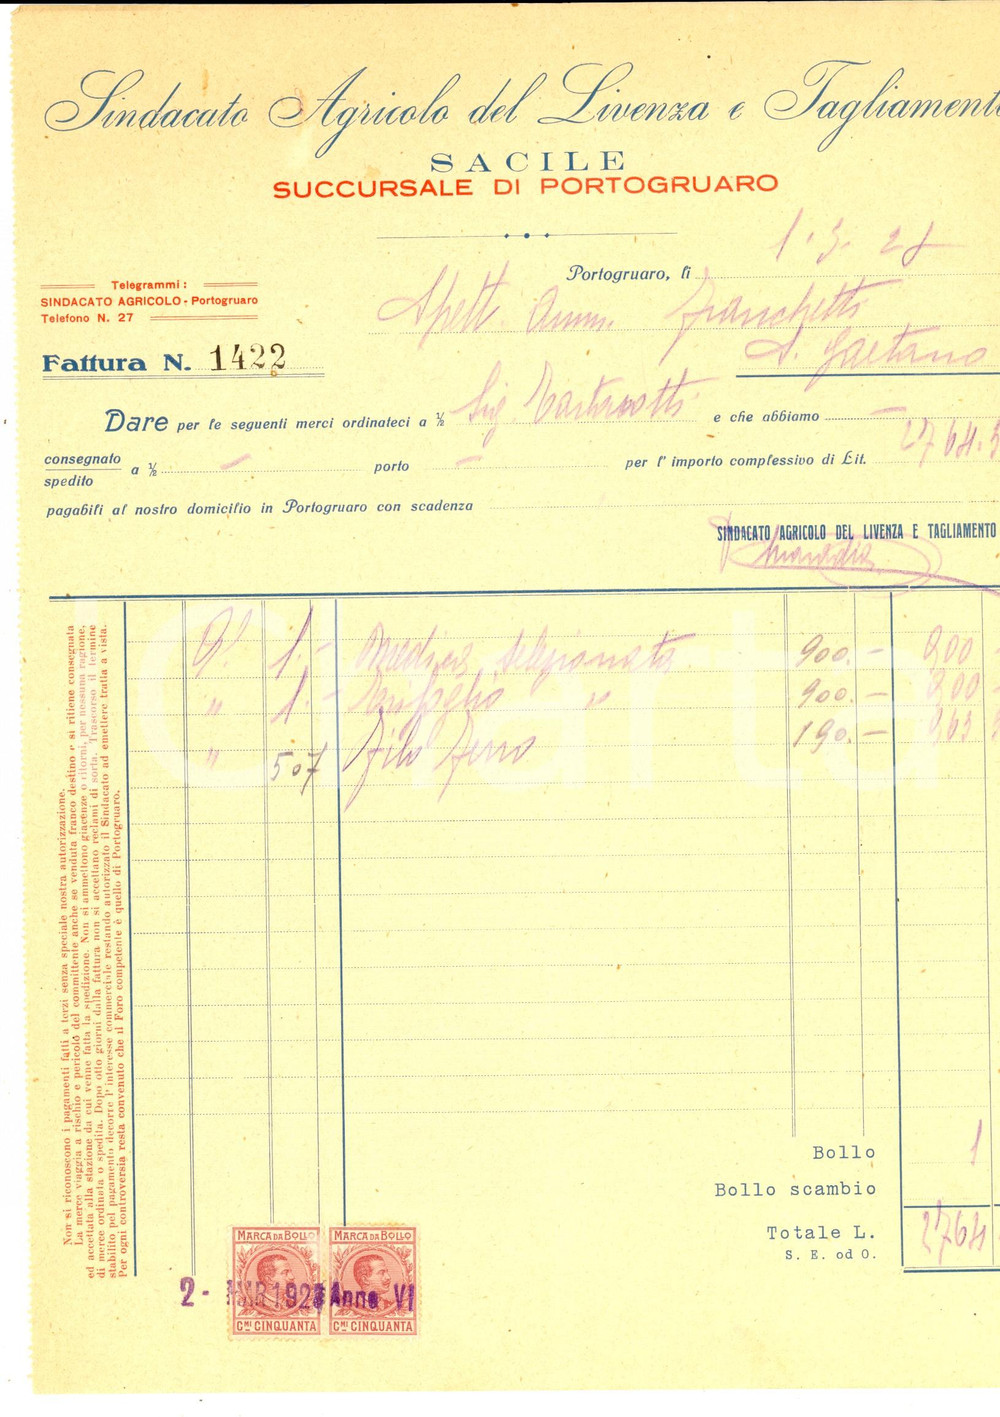 Sindacato Agricolo del Livenza e Tagliament
SACILE
SUCCURSALE DI PORTOGRUARO
Portogruaro, lì 1.3.28
Telegrammi:
SINDACATO AGRICOLO - Portogruaro
Telefono N. 27
Spett. Amm. Franchetti
S. Gaetano
Fattura N. 1422
Dare per le seguenti merci ordinateci a ½ Sig. e che abbiamo —
consegnato
spedito
a ½ — porto — per l'importo complessivo di Lit. 2764.5
pagabili al nostro domicilio in Portogruaro con scadenza
SINDACATO AGRICOLO DEL LIVENZA E TAGLIAMENTO
Q.li 1.- Medica selezionata 900.- 900
" 1.- Trifoglio " 900.- 900
" 5 07 Filo Ferro 190.- 963 3
Non si riconoscono i pagamenti fatti a terzi senza speciale nostra autorizzazione.
La merce viaggia a rischio e pericolo del committente anche se venduta franco destino e si ritiene consegnata
ed accettata alla stazione da cui venne fatta la spedizione. Non si ammettono giacenze o ritorni, per nessuna ragione,
di merce ordinata o spedita. Dopo otto giorni dalla fattura non si accettano reclami di sorta. Trascorso il termine
stabilito pel pagamento decorre l'interesse commerciale restando autorizzato il Sindacato ad emettere tratta a vista.
Per ogni controversia resta convenuto che il Foro competente è quello di Portogruaro.
Bollo 1
Bollo scambio
Totale L. 2764
S. E. od O.
MARCA DA BOLLO
MARCA DA BOLLO
2 - MAR 1928 Anno VI
CMI CINQUANTA
CMI CINQUANTA